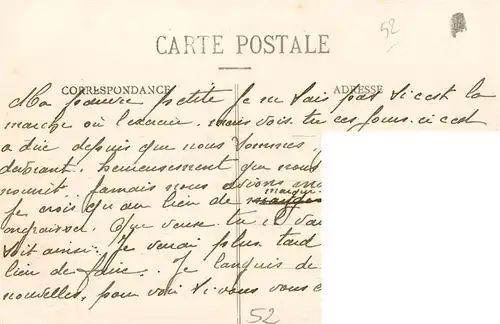 52
CARTE POSTALE
CORRESPONDANCE ADRESSE
Ma pauvre petite Je ne sais pas si c'est la
marche où l'exercice, mais vois tu ces jours ci c'est
a dire depuis que nous sommes
heureusement que nous
nourit. Jamais nous avions
maigrir
Je crois qu'au lieu de manger
engraisser. Que veux tu il vau
soit ainsi. Je verai plus tard
lieu de faire. Je languis de
nouvelles, pour voir si vous vous
52